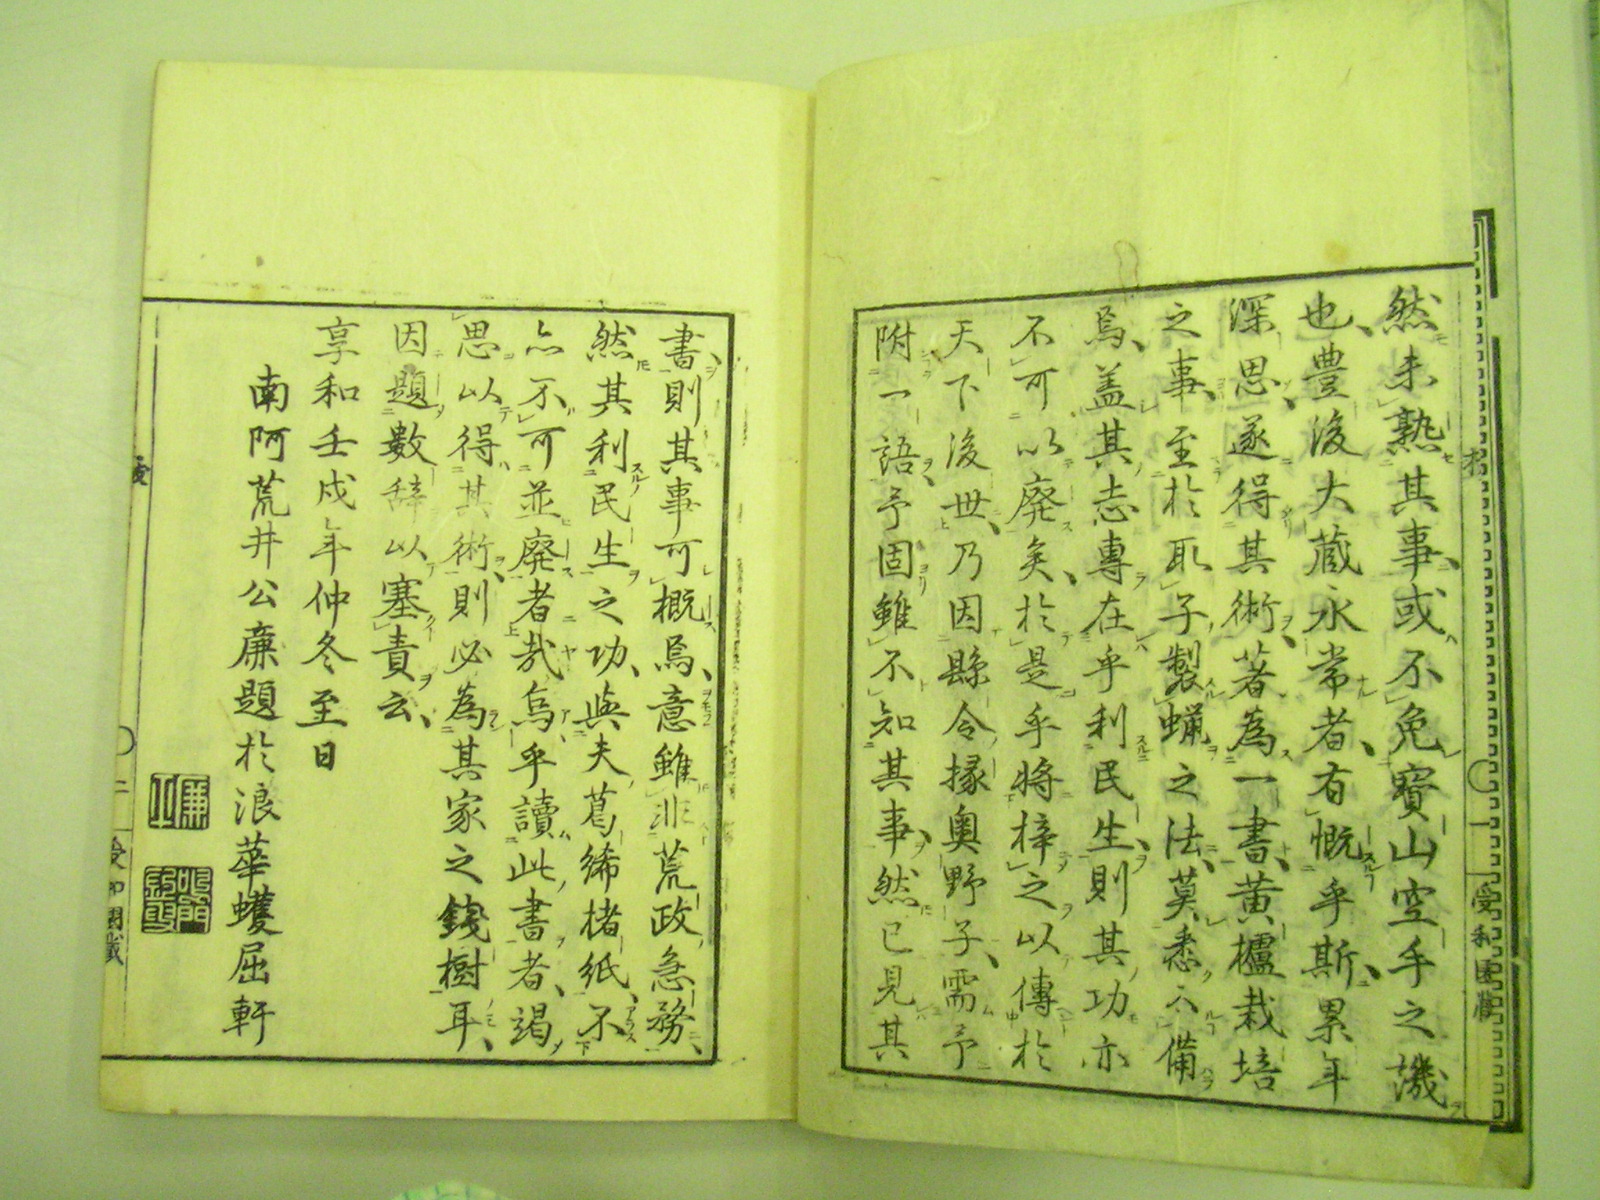 然未熟其事或不免寶山空手之譏
也豊後大蔵永常者有慨乎斯累年
深思遂得其術著為一書黄櫨栽培
之事至於取子製蝋之法莫悉不備
焉盖其志專在乎利民生則其功亦
不可以廃矣於是乎將梓之以傳於
天下後世乃因縣令掾奥野子需予
附一語予固雖不知其事然已見其
書則其事可概焉意雖非荒政急務
然其利民生之功與夫葛絺楮紙不
亦不可並廃者哉烏乎讀此書者竭
思以得其術則必為其家之錢樹耳
因題數辞以塞責云
享和壬戌年仲冬至日
南阿荒井公廉題於浪華蠖屈軒